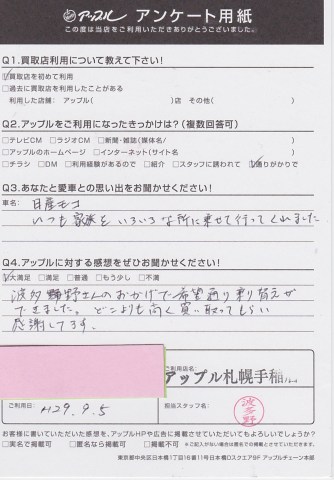 アップル アンケート用紙
この度は当店をご利用いただきありがとうございました。
Q1.買取店利用について教えて下さい!
☑買取店を初めて利用
□過去に買取店を利用したことがある
利用した店舗: アップル( )店 その他( )
Q2.アップルをご利用になったきっかけは?(複数回答可)
□テレビCM □ラジオCM □新聞・雑誌(媒体名/ )
□アップルのホームページ □インターネット(サイト名 )
□チラシ □DM □利用経験があるので □紹介 □スタッフに誘われて ☑通りがかりで
Q3.あなたと愛車との思い出をお聞かせください!
車名: 日産モコ
いつも家族をいろいろな所に乗せて行ってくれました
Q4.アップルに対する感想をぜひお聞かせください!
☑大満足 □満足 □普通 □もう少し □不満
波多野さんのおかげで希望通り乗り替えが
できました。どこよりも高く買い取ってもらい
感謝してます。
ご利用店名
アップル札幌手稲
ご利用日: H29.9.5
担当スタッフ名: 波多野
お客様に書いていただいた感想を、アップルHPや広告に掲載させていただいてもよろしいでしょうか?
□実名で掲載可 □匿名なら掲載可 □掲載不可 ※ご記入がない場合は匿名での掲載とさせていただきます。
東京都中央区日本橋1丁目16番11号日本橋Dスクエア9F アップルチェーン本部